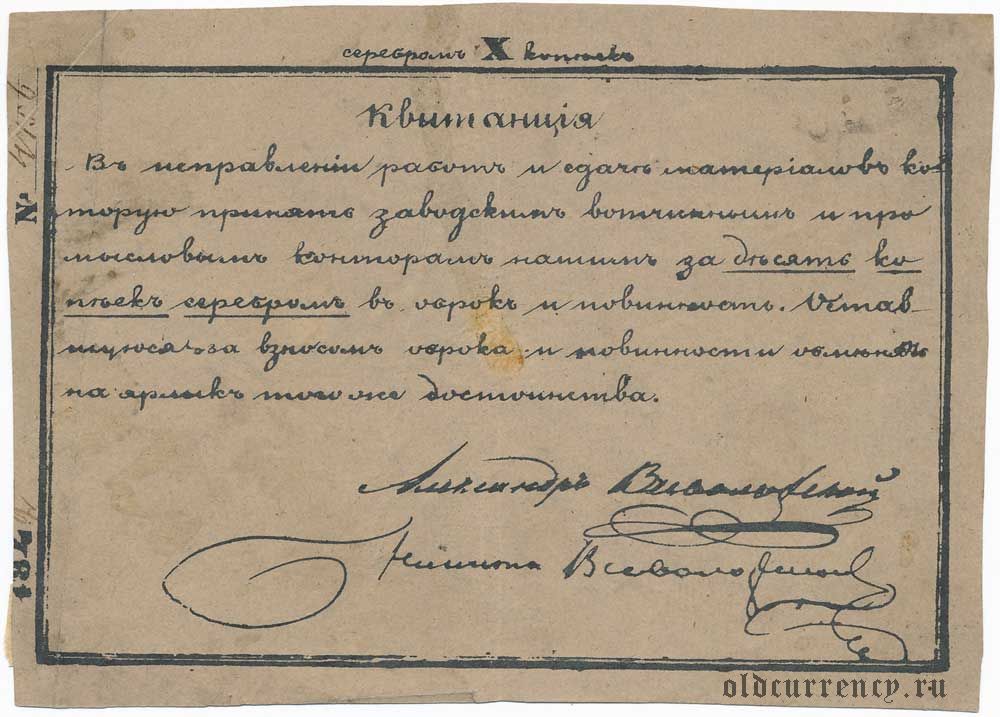 серебромъ X копѣекъ
Квитанція
Въ исправленіи работъ и сдачѣ матеріаловъ ко
торую принять заводскимъ вотчиннымъ и про
мысловымъ конторамъ нашимъ за дѣсять ко
пѣекъ серебромъ въ оброкъ и повинность. Остав-
шуюся за взносомъ оброка и повинности обмѣнять
на ярлыкъ того же достоинства.
Александръ Всеволожский
Никита Всеволожской
№ 4756
184
oldcurrency.ru